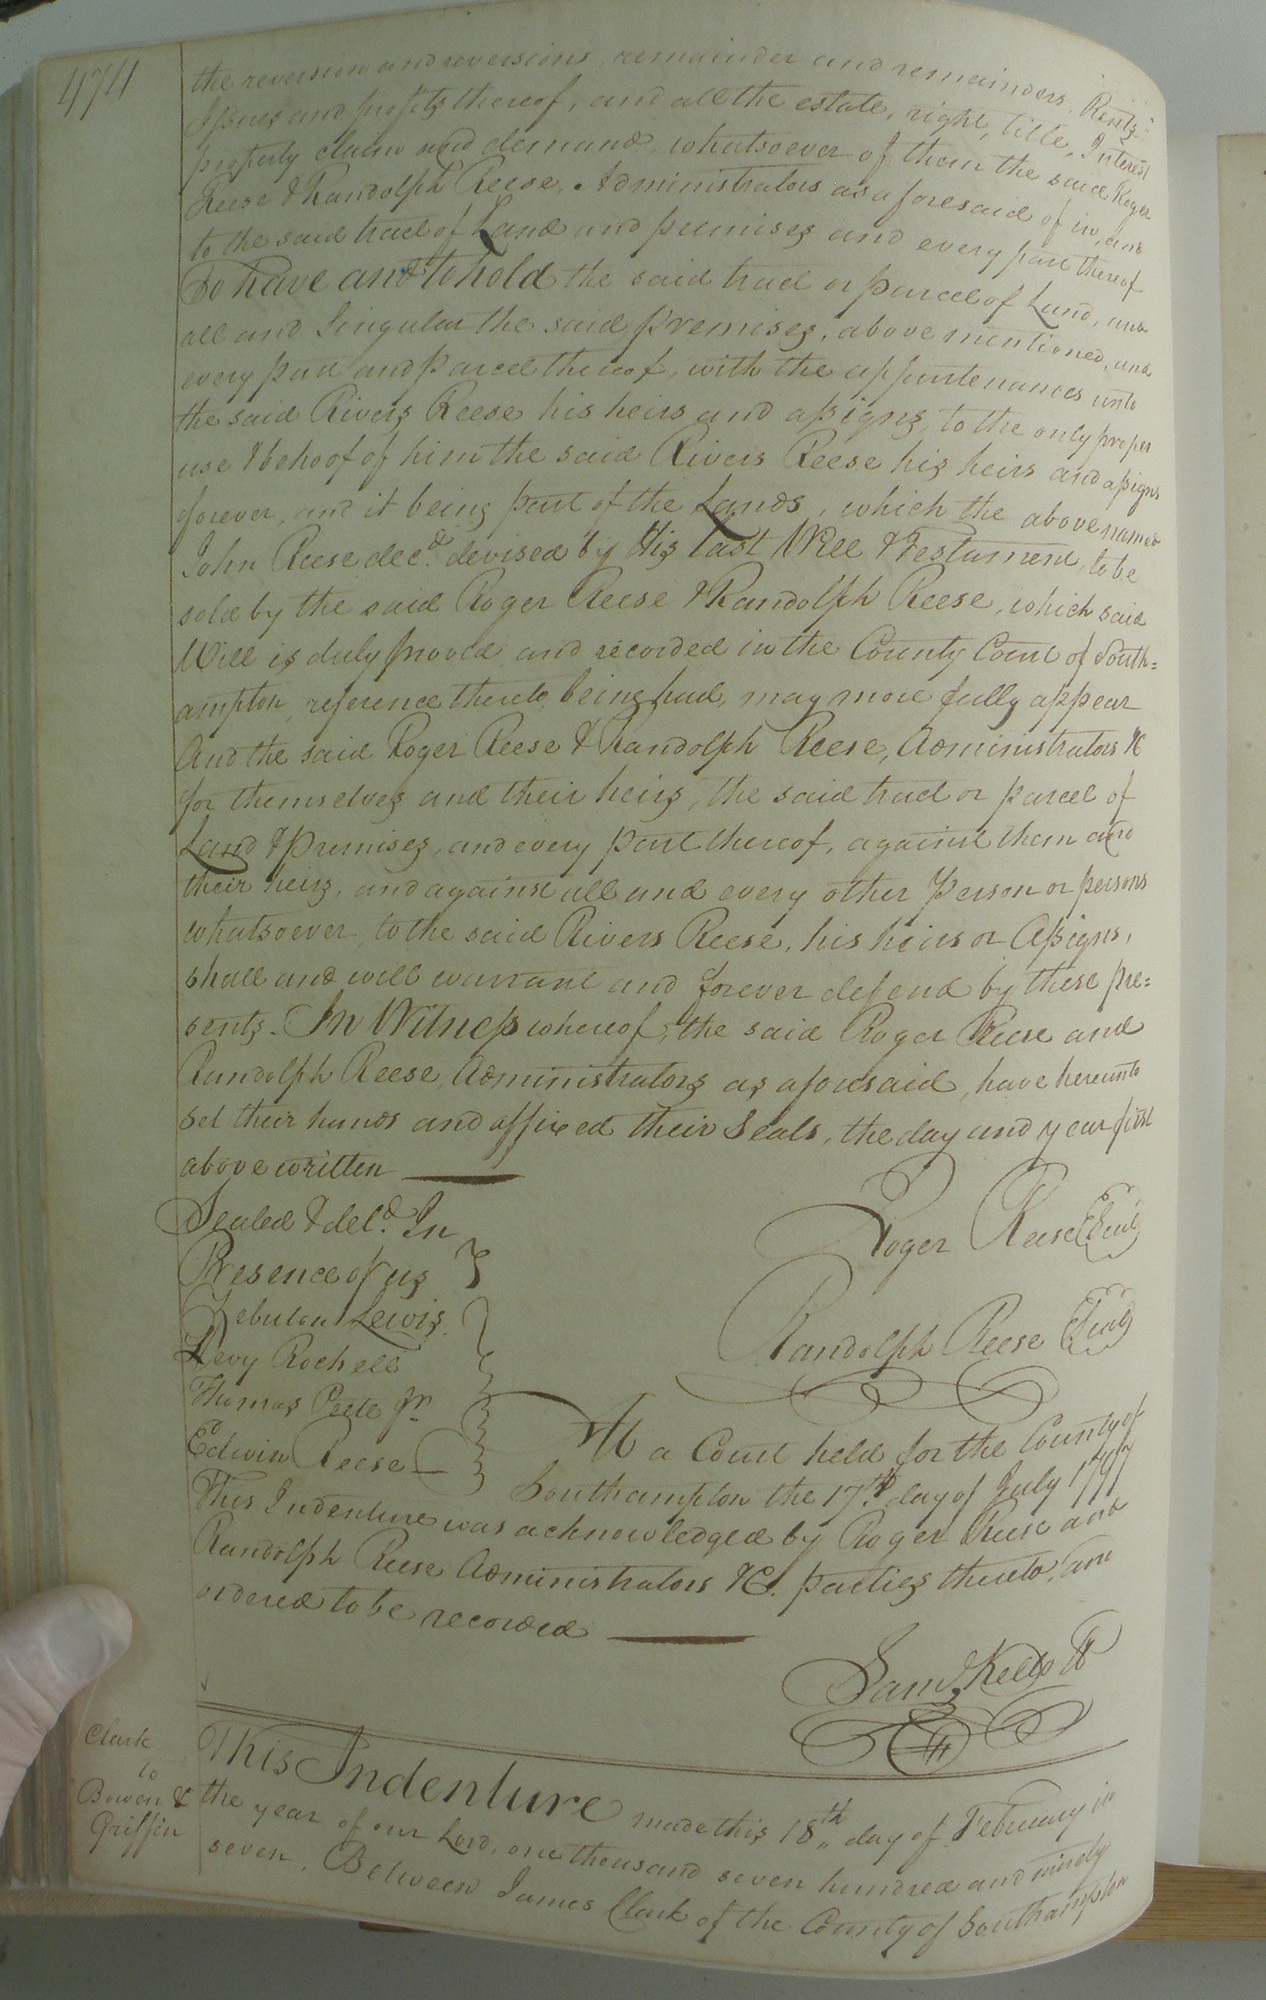 474
the reversion and reversions, remainder and remainders, Rents
Issues and profits thereof, and all the estate, right, title, Interest
property claim and demand, whatsoever of them the said Roger
Reese & Randolph Reese, Administrators as aforesaid of in, and
to the said tract of Land and premises and every part thereof
To have and to hold the said tract or parcel of Land, and
all and Singular the said premises, above mentioned, and
every part and parcel thereof, with the appurtenances unto
the said Rivers Reese his heirs and assigns, to the only proper
use & behoof of him the said Rivers Reese his heirs and assigns
forever, and it being part of the Lands, which the above named
John Reese decd. devised by His last Will & Testament, to be
sold by the said Roger Reese & Randolph Reese, which said
Will is duly proved and recorded in the County Court of South=
ampton, reference thereto being had, may more fully appear
And the said Roger Reese & Randolph Reese, Administrators &c
for themselves and their heirs, the said tract or parcel of
Land & premises, and every part thereof, against them and
their heirs, and against all and every other Person or persons
whatsoever, to the said Rivers Reese, his heirs or Assigns,
shall and will warrant and forever defend by these pre=
sents. In Witness whereof, the said Roger Reese and
Randolph Reese, Administrators as aforesaid, have hereunto
set their hands and affixed their Seals, the day and year first
above written
Sealed & deld. In
Presence of us
Roger Reese Seal
Zebulon Lewis
Levy Rochell
Randolph Reese Seal
Thomas Pete Jn
Edwin Reese
At a Court held for the County of
Southampton the 17th day of July 1797
This Indenture was acknowledged by Roger Reese and
Randolph Reese Administrators &c. parties thereto, and
ordered to be recorded
Saml Kello
Clark
to
Bowen &
Griffin
This Indenture made this 18th day of February in
the year of our Lord, one thousand seven hundred and ninety
seven, Between James Clark of the County of Southampton